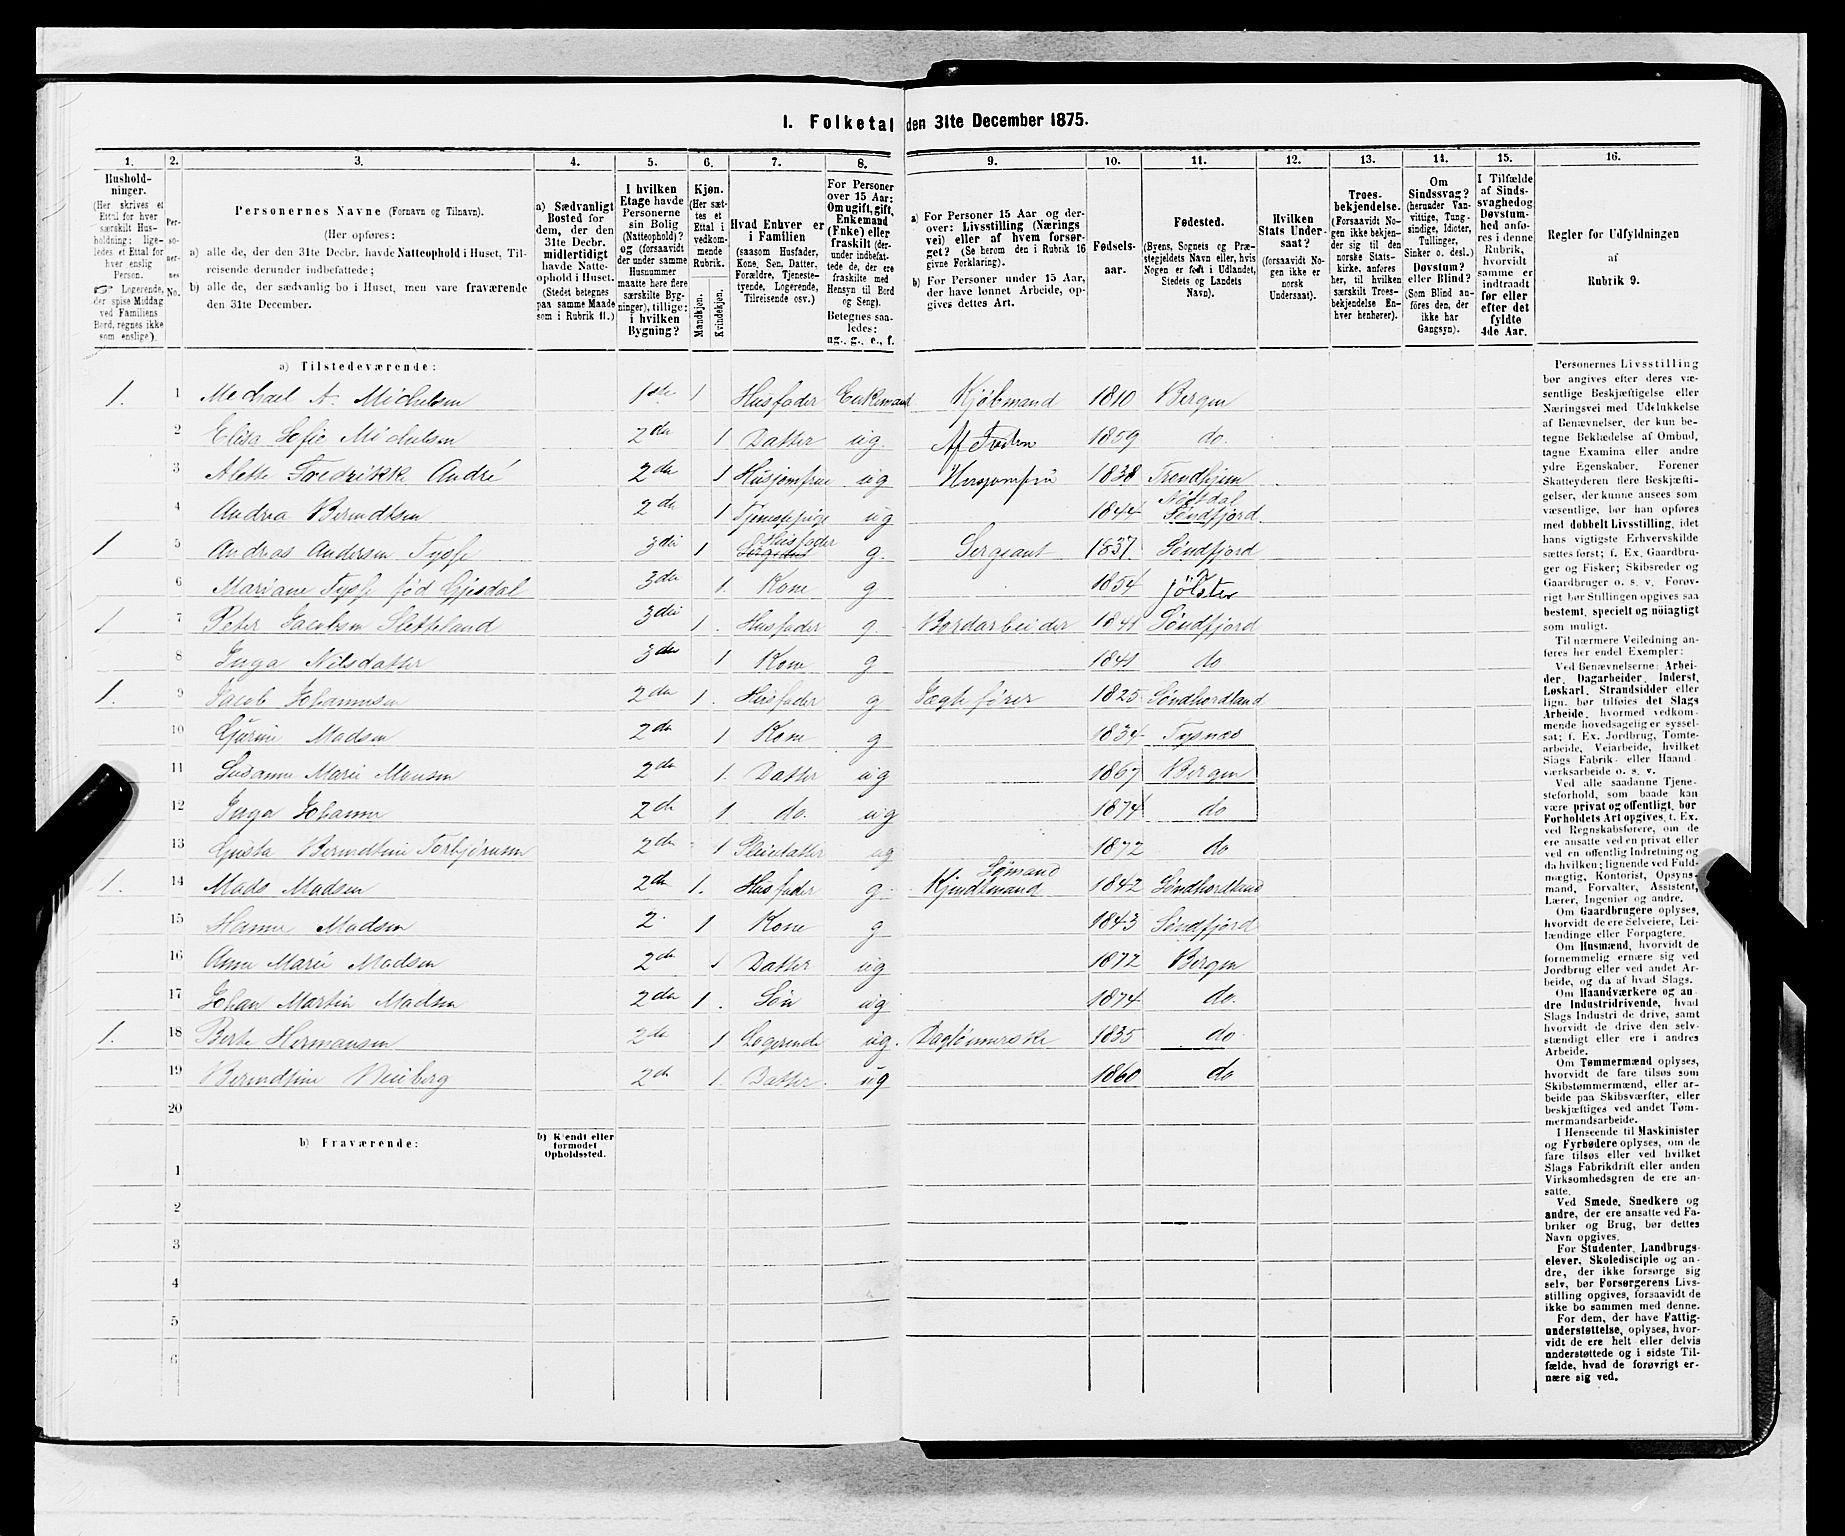 I. Folketal den 31te December 1875.
1. 2. 3. 4. 5. 6. 7. 8. 9. 10. 11. 12. 13. 14. 15. 16.
Husholdninger.
(Her skrives et
Ettal for hver
særskilt Husholdning;
ligeledes et Ettal for
hver enslig
Person.
☞ Logerende,
der spise Middag
ved Familiens
Bord, regnes ikke
som enslige).
Personernes No.
Personernes Navne (Fornavn og Tilnavn).
(Her opføres:
a) alle de, der den 31te Decbr. havde Natteophold i Huset, Tilreisende derunder indbefattede;
b) alle de, der sædvanlig bo i Huset, men vare fraværende
den 31te December.
a) Sædvanligt
Bosted for
dem, der den
31te Decbr.
midlertidigt
havde Natteophold i Huset.
(Stedet betegnes
paa samme Maade
som i Rubrik 11.)
I hvilken
Etage havde
Personerne
sin Bolig
(Natteophold)?
og (forsaavidt
der under samme
Husnummer
maatte høre flere
særskilte Bygninger), tillige:
i hvilken
Bygning?
Kjøn.
(Her sættes et
Ettal i
vedkommende
Rubrik.
Mandkjøn.
Kvindekjøn.
Hvad Enhver er
i Familien
(saasom Husfader,
Kone, Søn, Datter,
Forældre, Tjenestetyende, Logerende,
Tilreisende osv.)
For Personer
over 15 Aar:
Om ugift, gift,
Enkemand
(Enke) eller
fraskilt (derunder indbefattede de, der ere
fraskilte med
Hensyn til Bord
og Seng).
Betegnes saaledes:
ug., g., e., f.
a) For Personer 15 Aar og derover: Livsstilling (Næringsvei) eller af hvem forsørget? (Se herom den i Rubrik 16
givne Forklaring).
b) For Personer under 15 Aar,
der have lønnet Arbeide, opgives dettes Art.
Fødselsaar.
Fødested.
(Byens, Sognets og Præstegjeldets Navn eller, hvis
Nogen er født i Udlandet,
Stedets og Landets
Navn).
Hvilken
Stats Undersaat?
(forsaavidt Nogen ikke er
norsk
Undersaat).
Troesbekjendelse.
(Forsaavidt Nogen ikke bekjender sig til den
norske Statskirke, anføres
her, til hvilken
særskilt Troesbekjendelse Enhver henhører).
Om
Sindssvag?
(herunder Vanvittige, Tungsindige, Idioter,
Tullinger,
Sinker o. desl.)
Døvstum?
eller Blind?
(Som Blind anføres den, der
ikke har
Gangsyn).
I Tilfælde
af Sindssvaghed og
Døvstumhed anføres i denne
Rubrik,
hvorvidt
samme er
indtraadt
før eller
efter det
fyldte
4de Aar.
Regler for Udfyldningen
af
Rubrik 9.
a) Tilstedeværende:
1. 1 Michael A. Michelsen 1ste 1 Husfader Enkemand Kjøbmand 1810 Bergen
2 Elisa Sofie Michelsen 2den 1 Datter ug. Af Faderen 1859 do.
3 Alette Fredrikke André 2den 1 Husjomfrue ug Husjomfru 1838 Trondhjem
4 Andrea Berndtsen 2den 1 Tjenestepige ug 1844 Søndfjord
1 5 Andreas Andersen Tysse 3die 1 Sergeant Husfader g. Sergeant 1837 Søndfjord
6 Mariane Tysse fød Gjesdal 3die 1. Kone g 1854 Jølster
1 7 Peter Jacobsen Sletteland 3die 1. Husfader g. Bordarbeider 1841 Søndfjord
8 Inga Nilsdatter 3die 1 Kone g 1841 do
1. 9 Jacob Johannesen 2den 1. Husfader g Jægtfører 1825 Søndhordland
10 Gjørine Madsen 2den 1 Kone g 1834 Tysnæs
11 Susanne Marie Monsen 2den 1. Datter ug 1867 Bergen
12 Inga Johanne 2de 1 do. ug 1874 do
13 Gusta Berndtine Torbjørnsen 2den 1 Pleiedatter ug 1872 do
1. 14 Mads Madsen 2den 1. Husfader g. Kjendtmand Sømand 1842 Søndhordland
15 Hanne Madsen 2 1 Kone g 1843 Søndfjord
16 Anne Marie Madsen 2de 1 Datter ug 1872 Bergen
17 Johan Martin Madsen 2den 1. Søn ug 1874 do.
1. 18 Berte Hermansen 2de 1 Logerende ug. Daglønnerske 1835 do
19 Berndtine Neuberg 2de 1. Datter ug 1860 do
20
b) Fraværende:
b) Kjendt eller
formodet
Opholdssted.
1
2
3
4
5
6
Personernes Livsstilling
bør angives efter deres væsentlige Beskjæftigelse eller
Næringsvei med Udelukkelse
af Benævnelser, der kun betegne Beklædelse af Ombud,
tagne Examina eller andre
ydre Egenskaber. Forener
Skatteyderen flere Beskjæftigelser, der kunne ansees som
væsentlige, bør han opføres
med dobbelt Livsstilling, idet
hans vigtigste Erhvervskilde
sættes først; f. Ex. Gaardbruger og Fisker; Skibsreder og
Gaardbruger o. s. v. Forøvrigt bør Stillingen opgives saa
bestemt, specielt og nøiagtigt
som muligt.
Til nærmere Veiledning anføres her endel Exempler:
Ved Benævnelserne: Arbeider, Dagarbeider, Inderst,
Løskarl, Strandsidder eller
lign. bør tilføies det Slags
Arbeide, hvormed vedkommende hovedsagelig er sysselsat; f. Ex. Jordbrug, Tomtearbeide, Veiarbeide, hvilket
Slags Fabrik- eller Haandværksarbeide o. s. v.
Ved alle saadanne Tjenesteforhold, som baade kan
være privat og offentligt, bør
Forholdets Art opgives, t. Ex.
ved Regnskabsførere, om de
ere ansatte ved en privat eller
ved en offentlig Indretning og
da hvilken; lignende ved Fuldmægtig, Kontorist, Opsynsmand, Forvalter, Assistent,
Lærer, Ingeniør og andre.
Om Gaardbrugere oplyses,
hvorvidt de ere Selveiere, Leilændinge eller Forpagtere.
Om Husmænd, hvorvidt de
fornemmelig ernære sig ved
Jordbrug eller ved andet Arbeide, og da af hvad Slags.
Om Haandværkere og andre Industridrivende, hvad
Slags Industri de drive, samt
hvorvidt de drive den selvstændigt eller ere i andres
Arbeide.
Om Tømmermænd oplyses,
hvorvidt de fare tilsøs som
Skibstømmermænd, eller arbeide paa Skibsværfter, eller
beskjæftiges ved andet Tømmermandsarbeide.
I Henseende til Maskinister
og Fyrbødere oplyses, om de
fare tilsøs eller ved hvilket
Slags Fabrikdrift eller anden
Virksomhedsgren de ere ansatte.
Ved Smede, Snedkere og
andre, der ere ansatte ved Fabriker og Brug, bør dettes
Navn opgives.
For Studenter, Landbrugselever, Skoledisciple og andre, der ikke forsørge sig
selv, bør Forsørgerens Livsstilling opgives, forsaavidt de
ikke bo sammen med denne.
For dem, der have Fattigunderstøttelse, oplyses, hvorvidt de ere helt eller delvis
understøttede og i sidste Tilfælde, hvad de forøvrigt ernære sig ved.